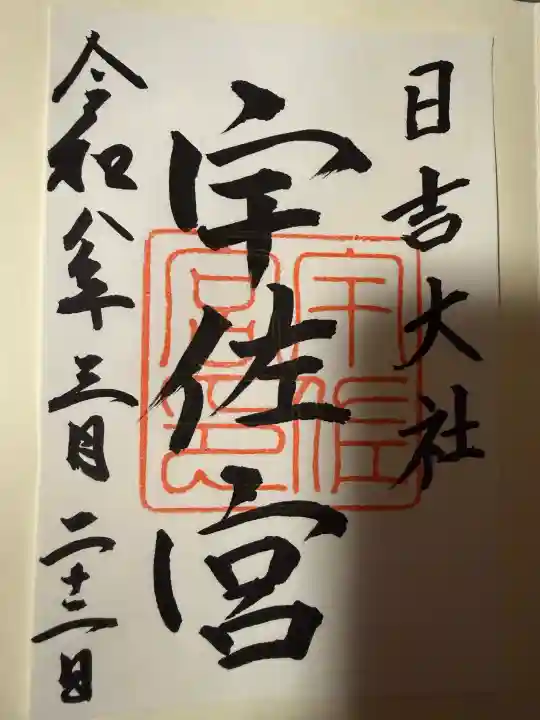 日吉大社
宇佐宮
令和八年三月二十二日
宇佐
宮印